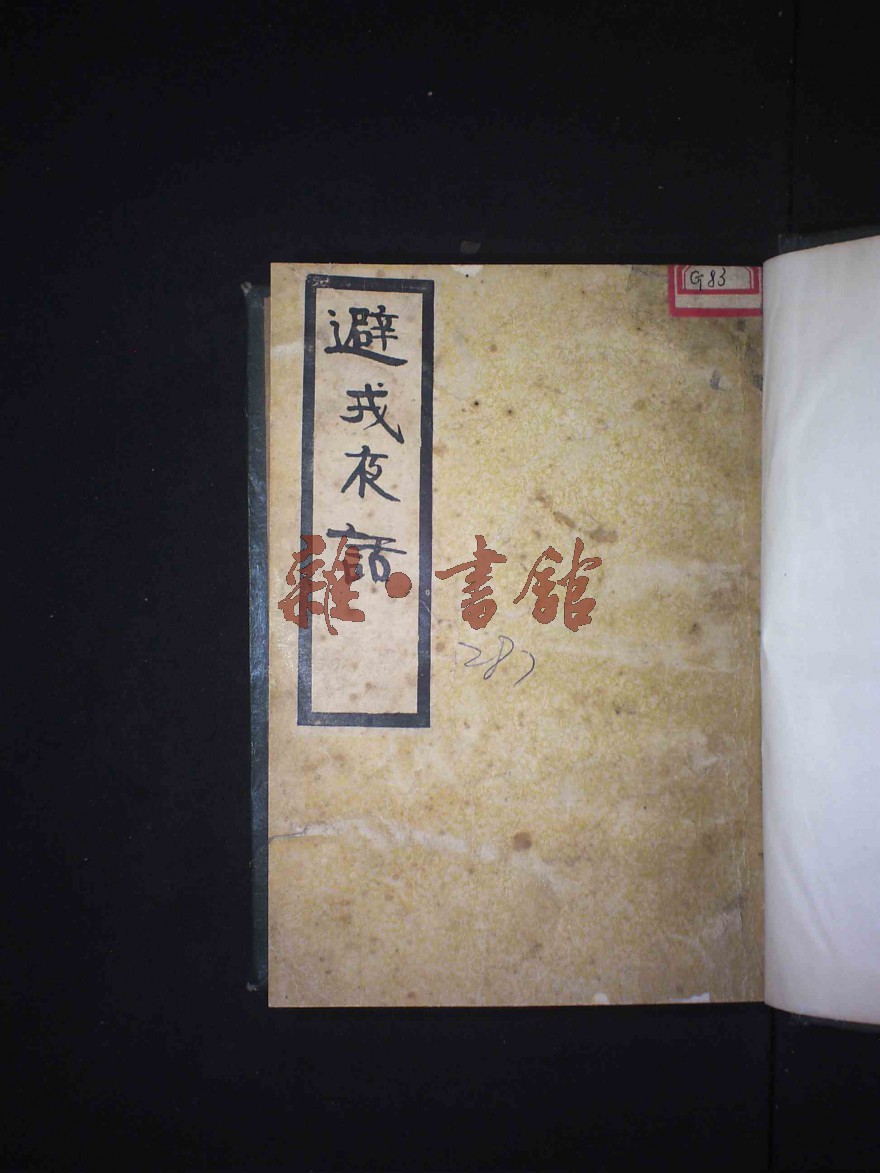 G83
避戎夜話
雜·書館
287